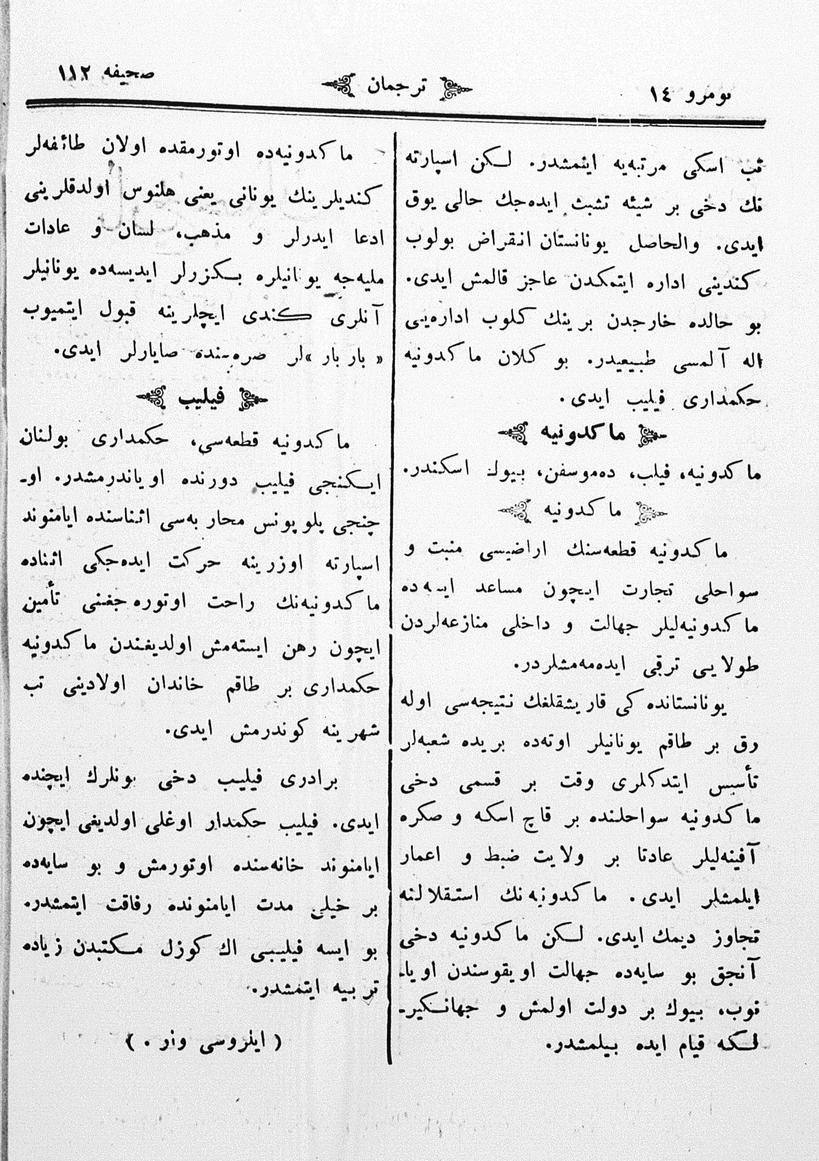 نومرو ١٤
ترجمان
صحیفه ١١٢
ثب اسکی مرتبه‌یه ایتمشدر. لکن اسپارته
نك دخی بر شیئه تشبث ایده‌جك حالی یوق
ایدی. والحاصل یونانستان انقراض بولوب
کندینی اداره ایتمکدن عاجز قالمش ایدی.
بو حالده خارجدن برینك کلوب اداره‌یی
اله آلمسی طبیعیدر. بو کلان ماکدونیه
حکمداری فیلیب ایدی.
ماکدونیه
ماکدونیه، فیلب، ده‌موسفن، بیوك اسکندر.
ماکدونیه
ماکدونیه قطعه‌سنك اراضیسی منبت و
سواحلی تجارت ایچون مساعد ایسه‌ده
ماکدونیه‌لیلر جهالت و داخلی منازعه‌لردن
طولایی ترقی ایده‌مه‌مشلردر.
یونانستانده کی قاریشقلغك نتیجه‌سی اوله
رق بر طاقم یونانیلر اوته‌ده بریده شعبه‌لر
تأسیس ایتدکلری وقت بر قسمی دخی
ماکدونیه سواحلنده بر قاچ اسکه و صکره
آفینه‌لیلر عادتا بر ولایت ضبط و اعمار
ایلمشلر ایدی. ماکدونیه‌نك استقلالنه
تجاوز دیمك ایدی. لکن ماکدونیه دخی
آنجق بو سایه‌ده جهالت اویقوسندن اویا‌ـ
نوب، بیوك بر دولت اولمش و جهانکیر‌ـ
لکه قیام ایده بیلمشدر.
ماکدونیه‌ده اوتورمقده اولان طائفه‌لر
کندیلرینك یونانی یعنی هلنوس اولدقلرینی
ادعا ایدرلر و مذهب، لسان و عادات
ملیه‌جه یونانیلره بکزرلر ایدیسه‌ده یونانیلر
آنلری کندی ایچلرینه قبول ایتمیوب
«باربار»لر صره‌سنده صایارلر ایدی.
فیلیب
ماکدونیه قطعه‌سی، حکمداری بولنان
ایکنجی فیلیب دورنده اویاندرمشدر. او‌ـ
چنجی پلوپونس محاربه‌سی اثناسنده ایامنوند
اسپارته اوزرینه حرکت ایده‌جکی اثناده
ماکدونیه‌نك راحت اوتوره‌جغنی تأمین
ایچون رهن ایسته‌مش اولدیغندن ماکدونیه
حکمداری بر طاقم خاندان اولادینی تب
شهرینه کوندرمش ایدی.
برادری فیلیب دخی بونلرك ایچنده
ایدی. فیلیب حکمدار اوغلی اولدیغی ایچون
ایامنوند خانه‌سنده اوتورمش و بو سایه‌ده
بر خیلی مدت ایامنونده رفاقت ایتمشدر.
بو ایسه فیلیبی اك کوزل مکتبدن زیاده
تربیه ایتمشدر.
( ایلروسی وار . )